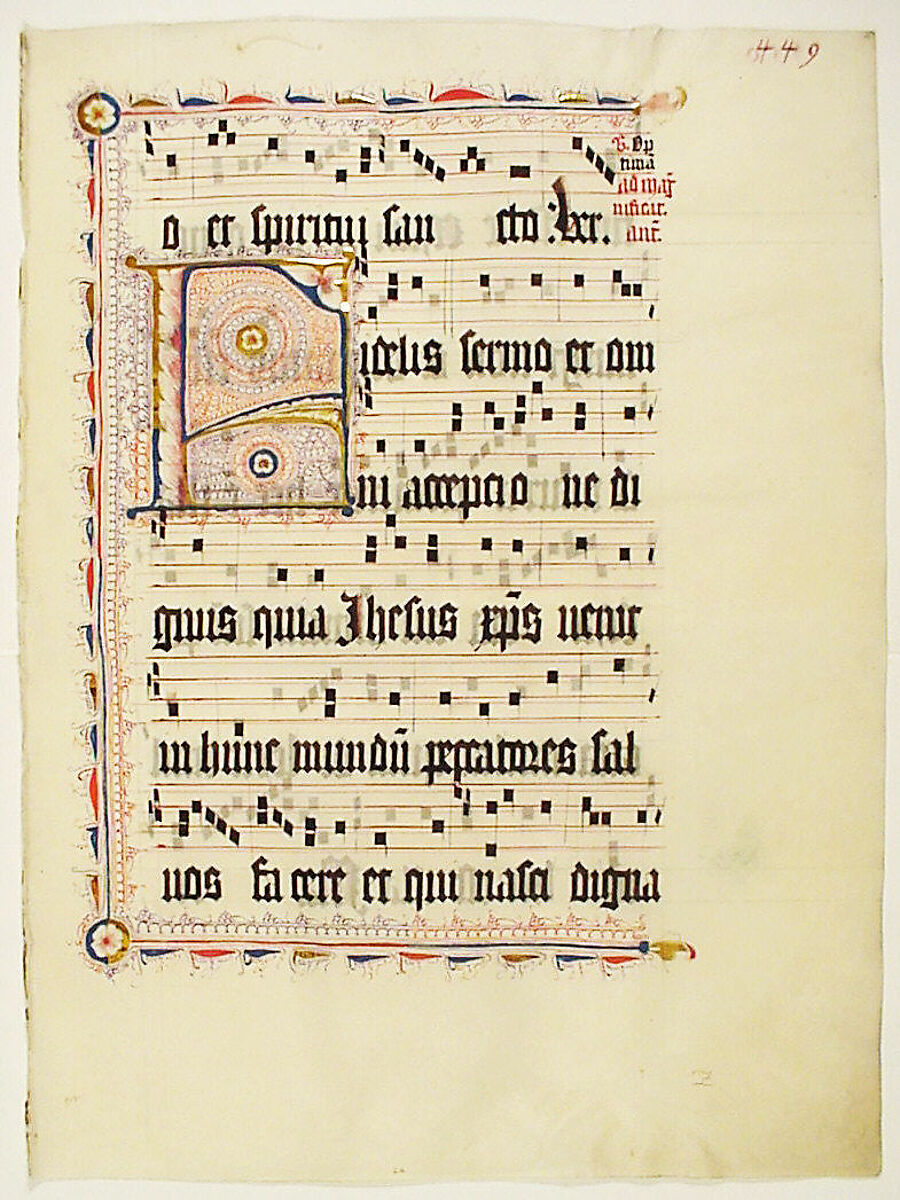 449
o et spiritui san cto. 
V. Op
tima
ad mag
nificat.
ant.
Fidelis sermo et om
ni acceptio ne di
gnus quia Jhesus xp̄s uenit
in hunc mundū peccatores sal
uos facere et qui nasci digna